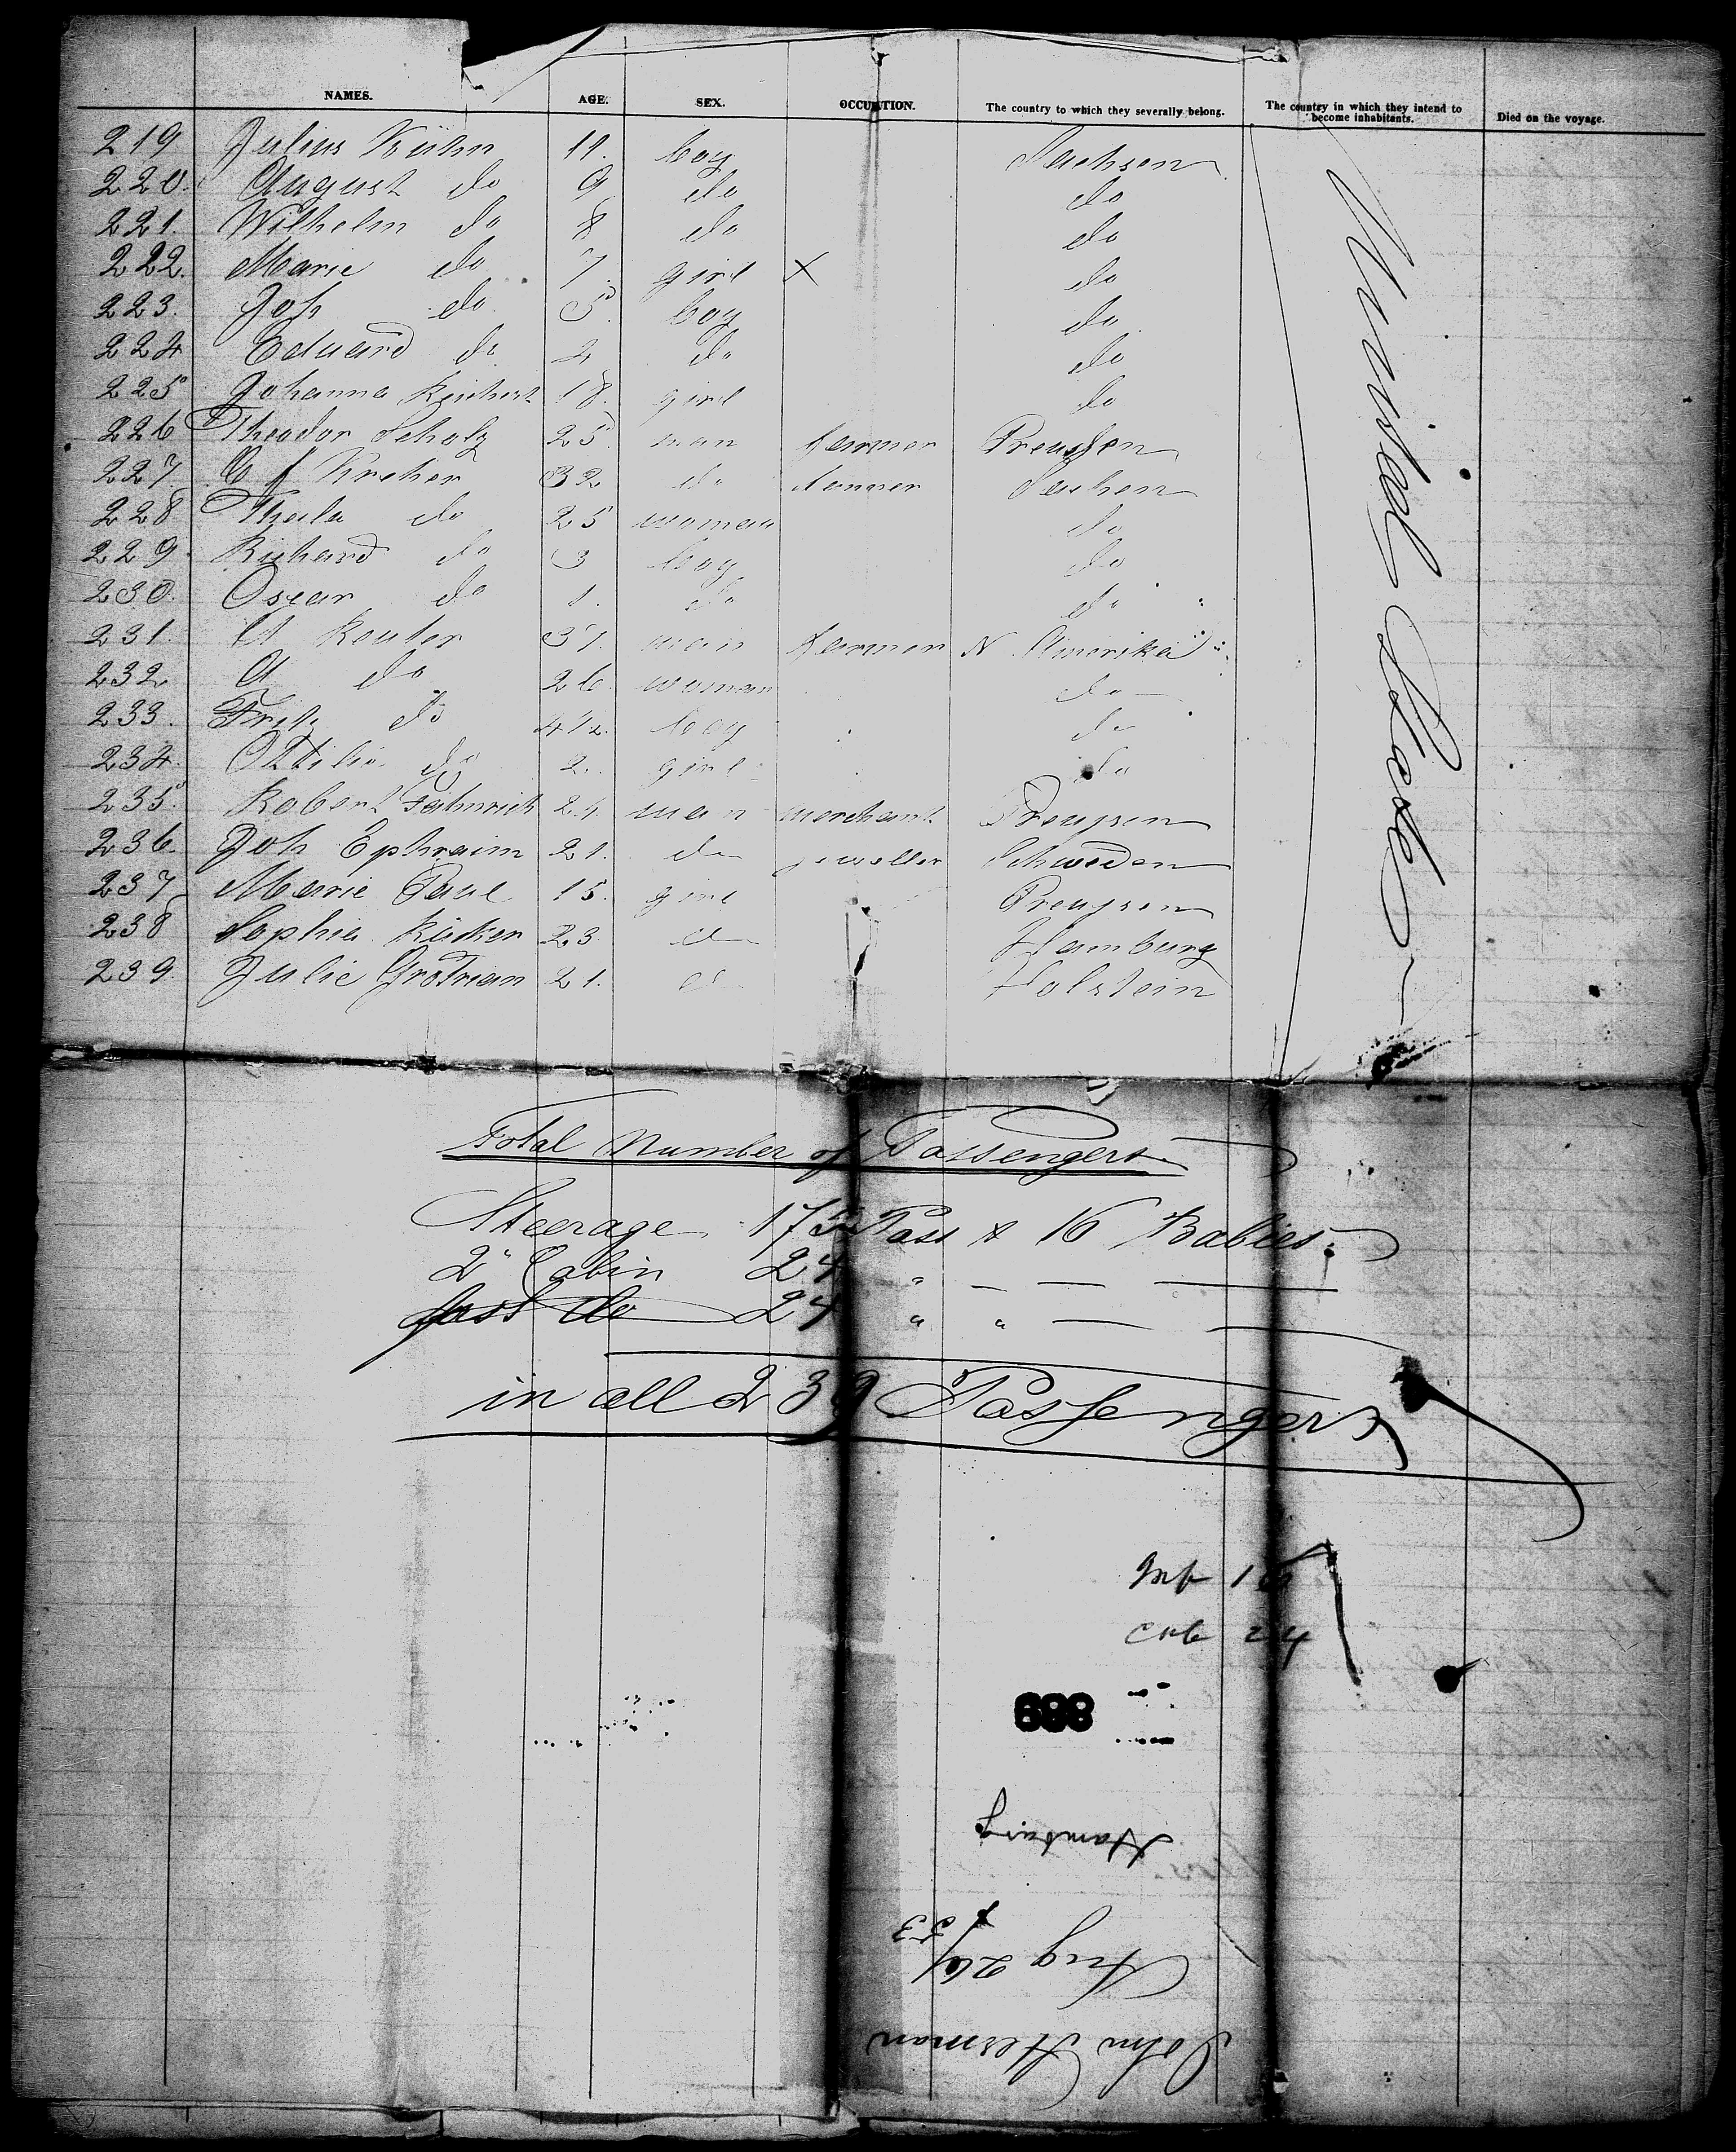 NAMES. AGE. SEX. OCCUPATION. The country to which they severally belong. The country in which they intend to become inhabitants. Died on the voyage.
219 Julius Kühn 11. boy Sachsen
220. August do 9 do do
221. Wilhelm do 8 do do
222. Marie do 7 girl X do
223. Joh do 5 boy do
224 Eduard do 2 do do
225 Johanna 18. girl do
226 Theodor Scholz 25 man farmer Preussen
227. C f Kreher 32 do Sachsen
228 Thecla do 25 woman do
229 Richard do 3 boy do
230. Oscar do 1. do do
231. A Reuter 37. man farmer N Amerika
232 A do 26 woman do
233. Fritz do 4 1/2 boy do
234. Ottilie do 2. girl do
235. Robert Fähnrich 24. man merchant Preussen
236. Joh Ephraim 21. do jeweller Schweden
237 Marie Paul 15. girl Preussen
238 Sophia Rücker 23 do Hamburg
239. Julie Grotrian 21. do Holstein
United States
Total Number of Passengers
Steerage 175 Pass & 16 Babies.
2" Cabin 24 "
first do 24 " "
in all 239 Passengers
Inf 16
Cab 24
889
Hamburg
Aug 26/53
John Herman